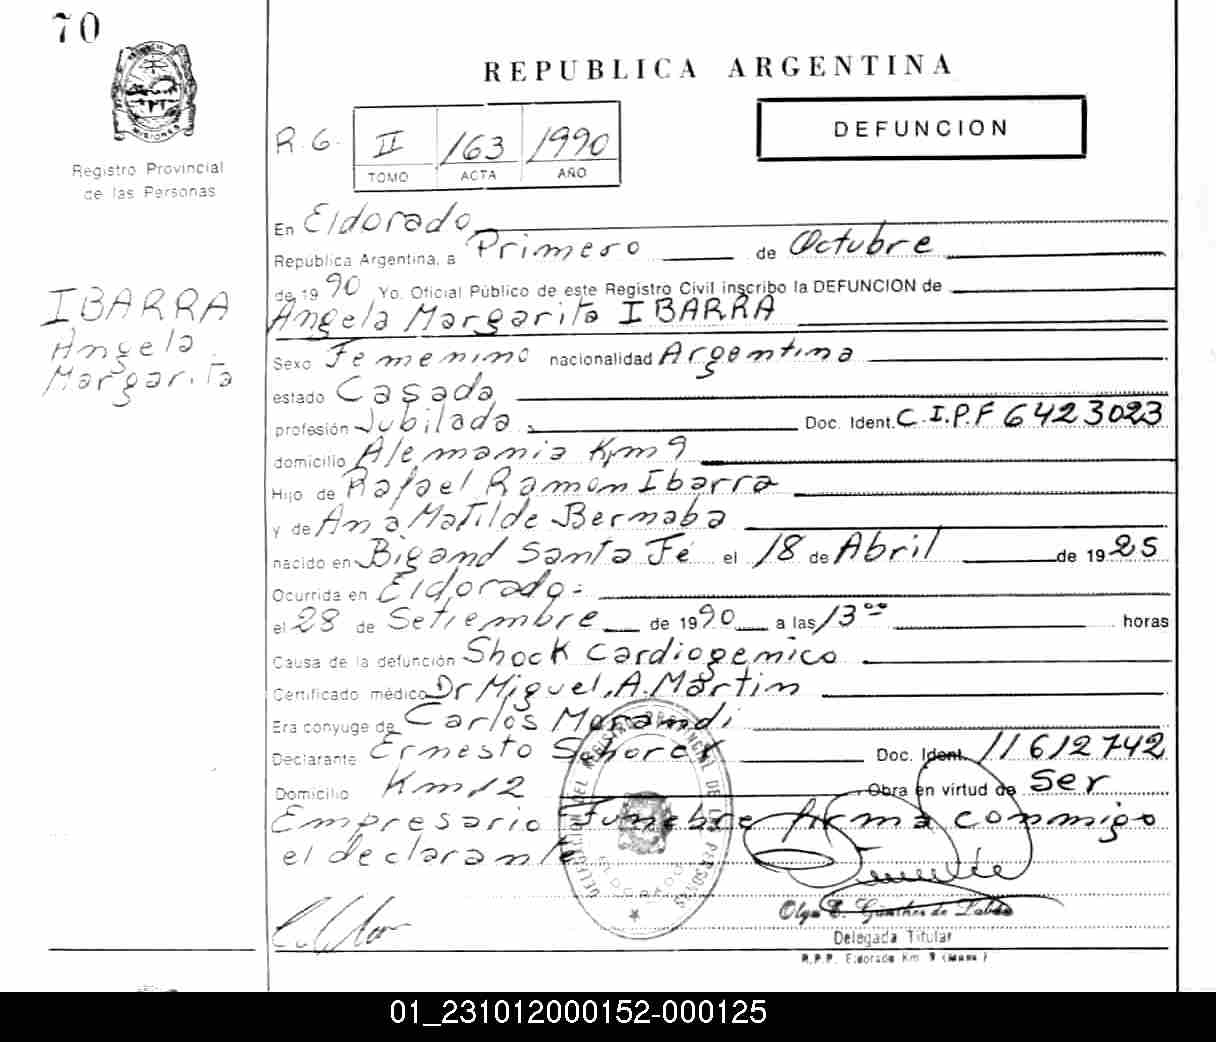 70
PROVINCIA DE
MISIONES
Registro Provincial
de las Personas
IBARRA
Angela
Margarita
REPUBLICA ARGENTINA
R.G. II 163 1990
TOMO ACTA AÑO
DEFUNCION
En Eldorado
Republica Argentina, a Primero de Octubre
de 1990 Yo. Oficial Público de este Registro Civil inscribo la DEFUNCION de
Angela Margarita IBARRA
Sexo Femenino nacionalidad Argentina
estado Casada
profesión Jubilada. Doc. Ident. C.I.P.F 6423023
domicilio Alemania Km 9
Hijo de Rafael Ramon Ibarra
y de Ana Matilde Bernaba
nacido en Bigand Santa Fé el 18 de Abril de 1925
Ocurrida en Eldorado.
el 28 de Setiembre de 1990 a las 13 ⁰⁰ horas
Causa de la defunción Shock Cardiogenico
Certificado médico Dr Miguel, A. Martin
Era conyuge de Carlos Morandi
Declarante Ernesto Schorek Doc. Ident. 11612742
Domicilio Km 12 Obra en virtud de Ser
Empresario Funebre Firma conmigo
el declarante
DELEGACION DEL REGISTRO PROVINCIAL DE LAS PERSONAS
ELDORADO
Olga E. Günther de
Delegada Titular
R.P.P. Eldorado Km 9 (Mnes)
01_231012000152-000125